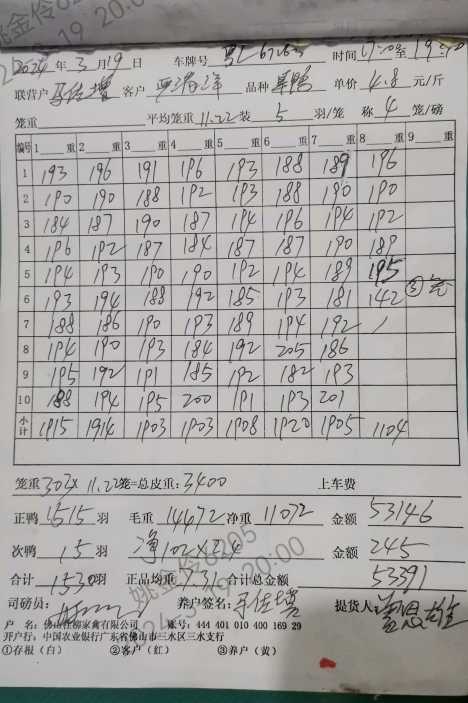 2024 年 3 月 19 日 车牌号 时间 17:00 至 19:00
联营户 客户 品种 单价 4.8 元/斤
笼重 平均笼重 11.22 装 5 羽/笼 称 4 笼/磅
编号 1 重 2 重 3 重 4 重 5 重 6 重 7 重 8 重 9 重
1 193 196 191 196 193 188 189 196
2 190 190 188 192 193 188 190 190
3 184 187 190 187 194 196 194 192
4 196 192 187 184 187 187 190 189
5 194 193 190 190 192 194 189 195
6 193 194 188 192 185 193 181 142 ③
7 188 186 190 193 189 194 192 /
8 194 190 193 184 192 205 186
9 195 192 191 185 192 182 193
10 188 194 195 200 191 193 201
小计 1915 1914 1903 1903 1908 1920 1905 1104
笼重 303 x 11.22 笼=总皮重: 3400 上车费
正鸭 1515 羽 毛重 14472 净重 11072 金额 53146
次鸭 15 羽 净 102 x 2.4 金额 245
合计 1530 羽 正品均重 7.31 合计总金额 53391
司磅员: 养户签名: 提货人:
户 名: 佛山佳柳家禽有限公司 账号: 444 401 010 400 169 29
开户行: 中国农业银行广东省佛山市三水区三水支行
①存根（白） ②客户（红） ③养户（黄）
姚金伶6205
20:00